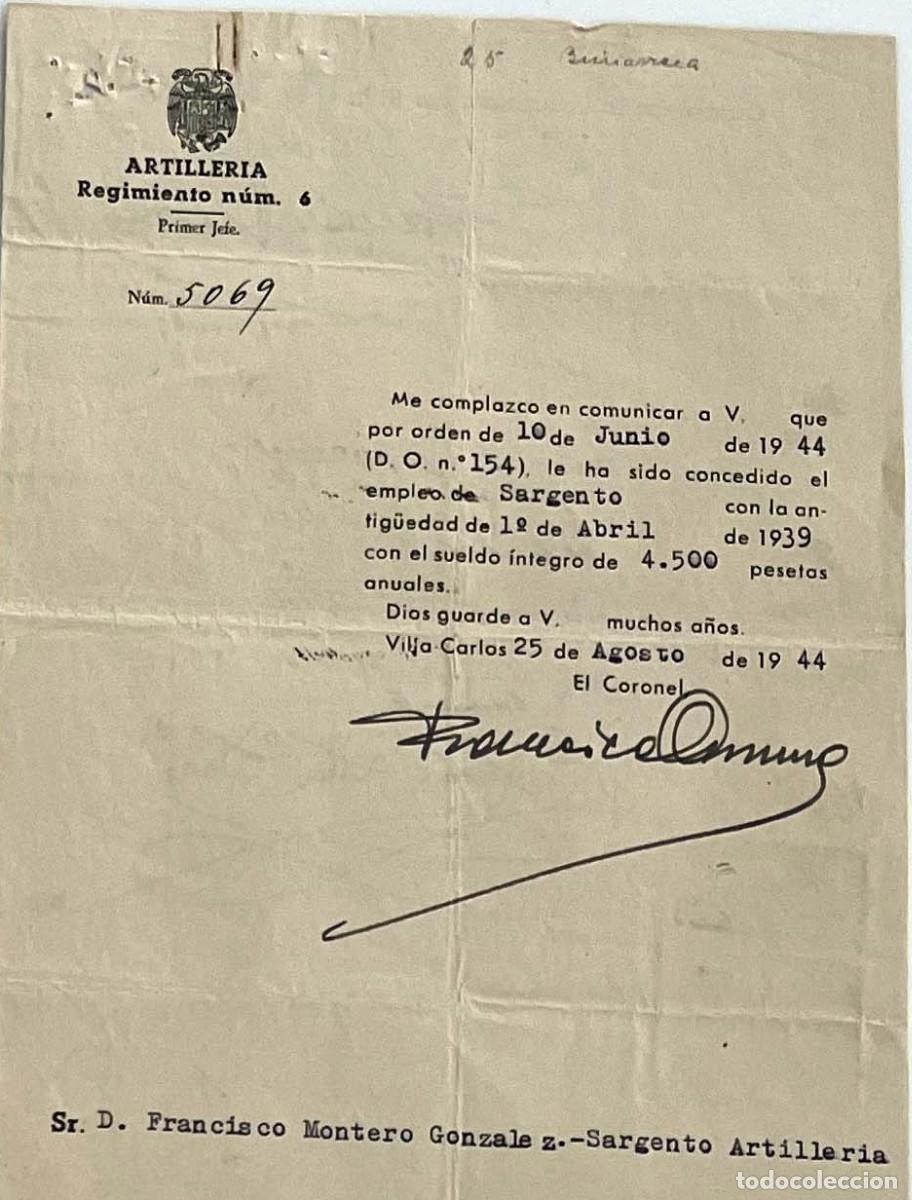 25
ARTILLERIA
Regimiento núm. 6
Primer Jefe.
Núm. 5069
Me complazco en comunicar a V. que
por orden de 10 de Junio de 1944
(D. O. n.º 154), le ha sido concedido el
empleo de Sargento con la an-
tigüedad de 1º de Abril de 1939
con el sueldo íntegro de 4.500 pesetas
anuales.
Dios guarde a V. muchos años.
Villa-Carlos 25 de Agosto de 1944
El Coronel
Francisco
Sr. D. Francisco Montero Gonzalez.-Sargento Artilleria
todocoleccion